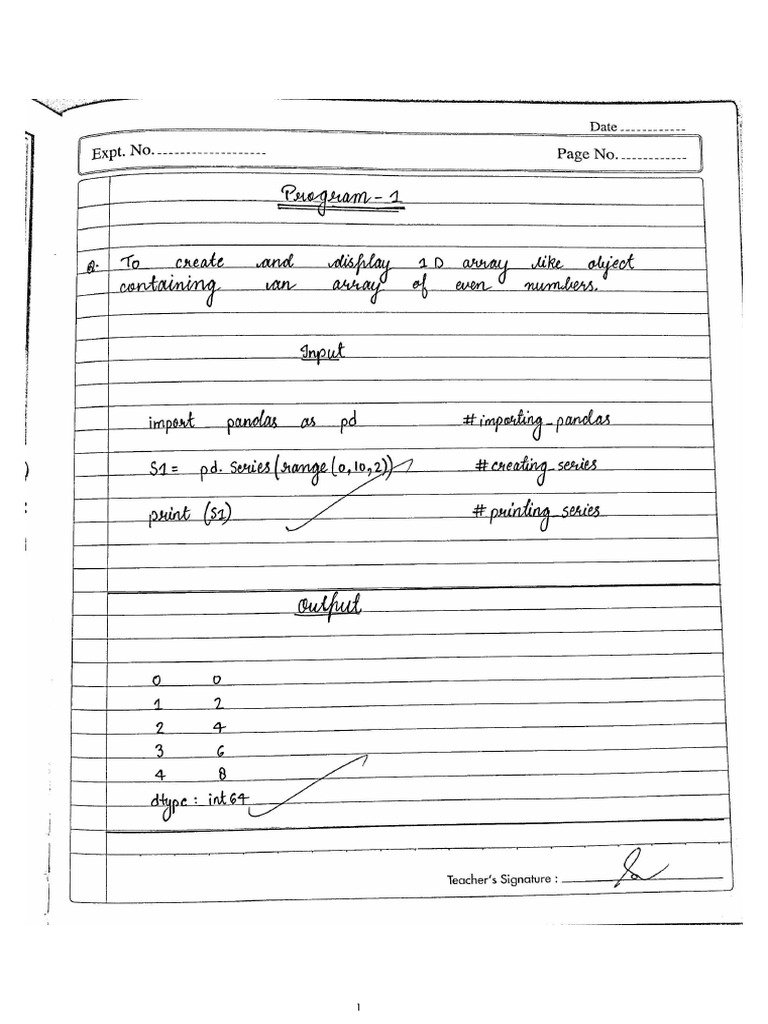 Date
Expt. No.
Page No.
Program - 1
Q. To create and display 1D array like object
containing an array of even numbers.
Input
import pandas as pd #importing_pandas
S1 = pd. Series(range(0,10,2)) #creating_series
print (S1) #printing_series
Output
0 0
1 2
2 4
3 6
4 8
dtype : int64
Teacher's Signature :
1